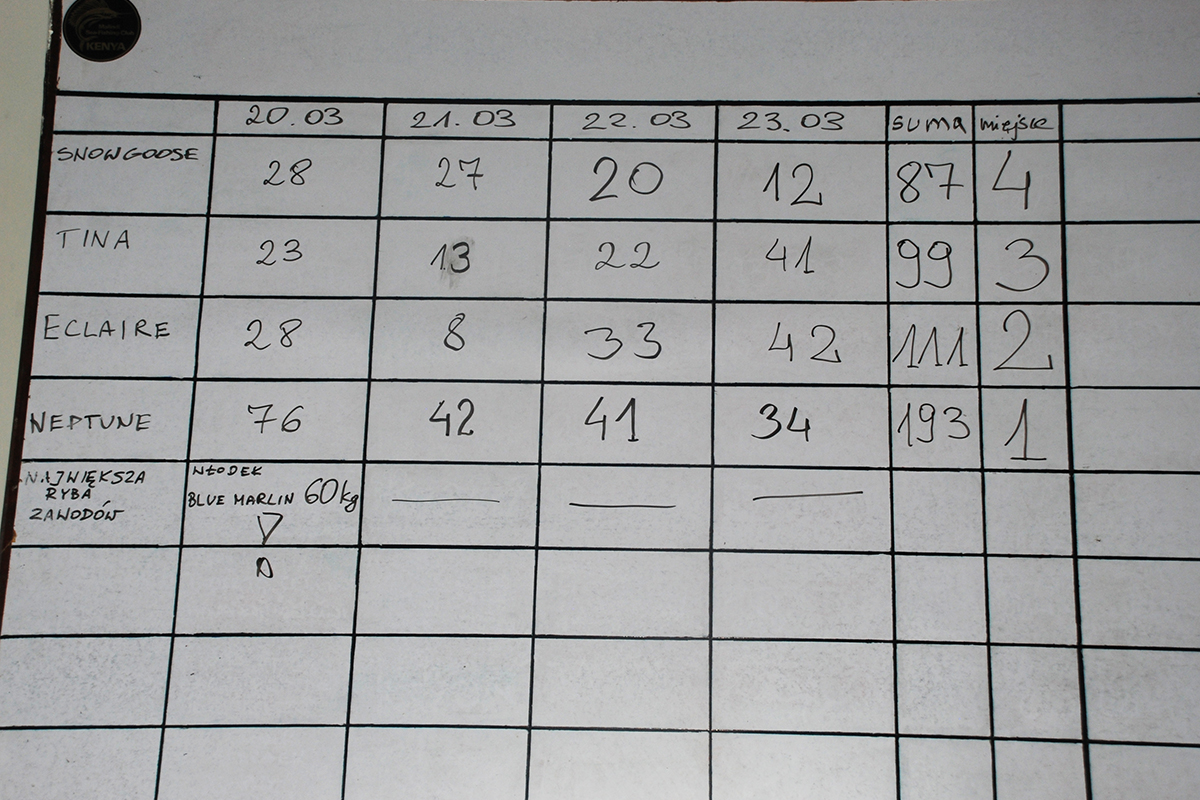 KENYA
20.03 21.03 22.03 23.03 suma miejsce
SNOWGOOSE 28 27 20 12 87 4
TINA 23 13 22 41 99 3
ECLAIRE 28 8 33 42 111 2
NEPTUNE 76 42 41 34 193 1
NAJWIĘKSZA
RYBA
ZAWODÓW
WŁODEK
BLUE MARLIN 60kg